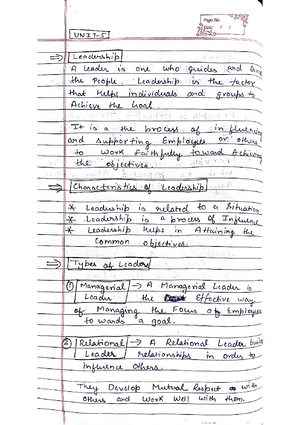 Page No.
Date
UNIT-5
⇒ Leadership
A Leader is one who guides and
the People. Leadership is the factor
that helps individuals and groups to
Achieve the Goal.
It is a the process of influencing
and supporting Employees or others
to work Faithfully toward Achieving
the objectives.
⇒ Characteristics of Leadership
* Leadership is related to a Situation
* Leadership is a process of Influence
* Leadership Helps in Attaining the
Common objectives.
⇒ Types of Leaders
① Managerial Leader → A Managerial Leader is
the Effective way
of Managing the Focus of Employees
to wards a goal.
② Relational Leader → A Relational Leader build
relationships in order to
influence others.
They Develop Mutual Respect with
others and work well with them.